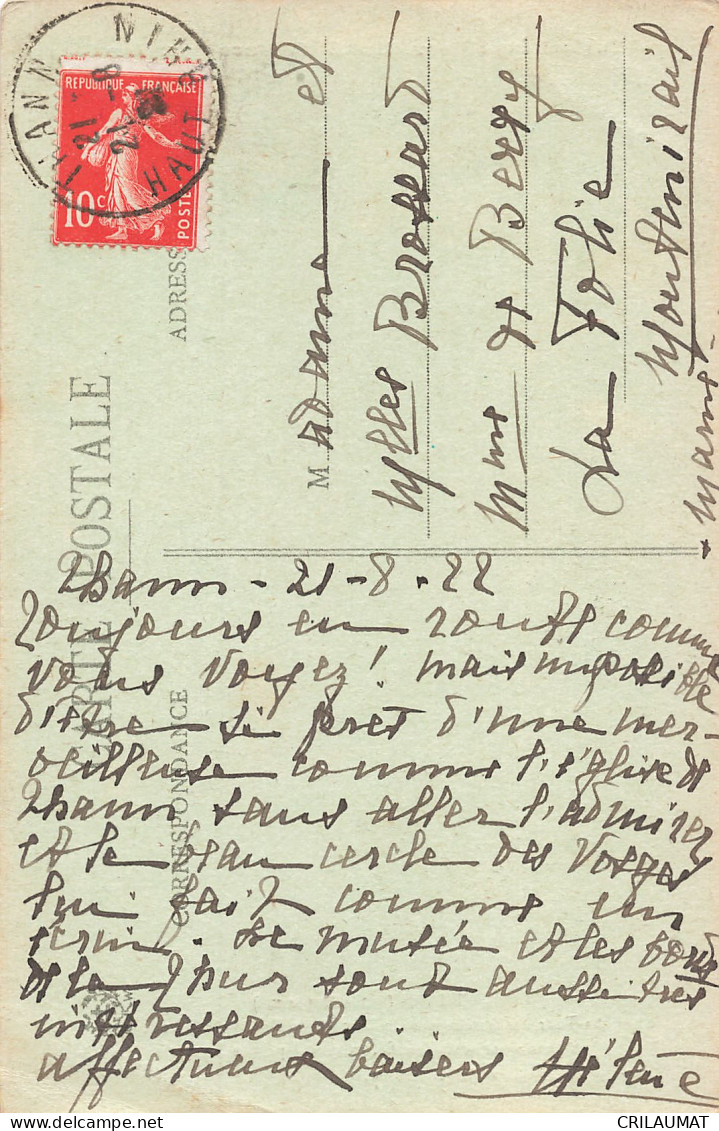 THANN
HAUT
21 - 8
REPUBLIQUE FRANÇAISE
10c
POSTES
CARTE POSTALE
ADRESSE
CORRESPONDANCE
Madame et
Mlles Brossard
Mme de Berry
La Folie
Montmirail
Marne
Thann - 21 - 8 - 22
Toujours en route comme
vous voyez! mais impossible
d'être si près d'une mer-
veilleuse comme l'église de
Thann sans aller l'admirer
et le beau cercle des Vosges
lui fait comme un
écrin. Le musée et les bords
de la Thur sont aussi très
intéressants.
affectueux baisers Hélène
CRILAUMAT